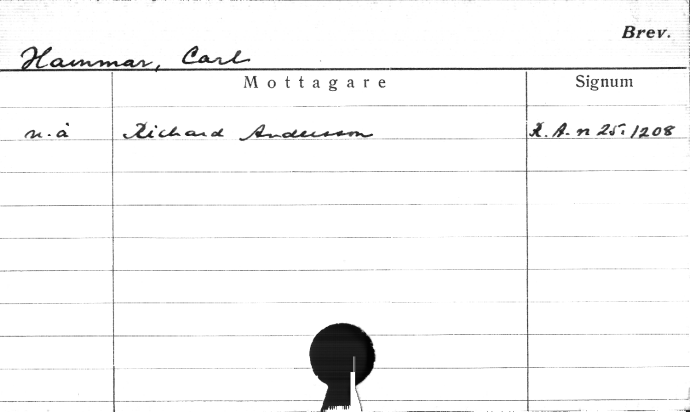 Brev.
Hammar, Carl
Mottagare Signum
u.å Richard Andersson R.A. n 25:1208